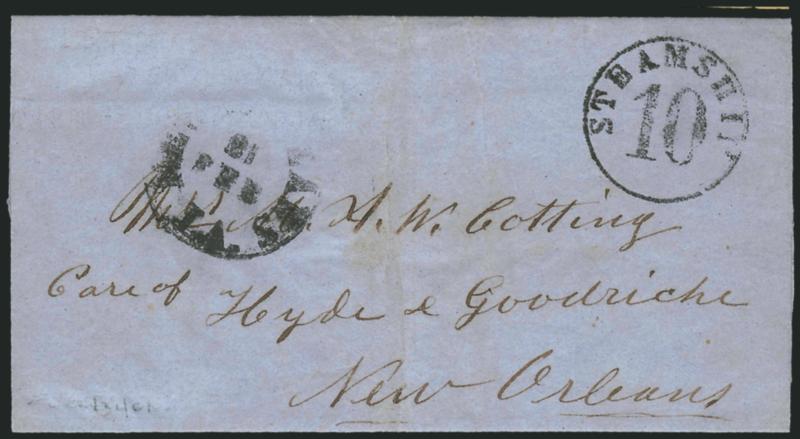 STEAMSHIP
10
21
FEB
LA.
M. A. W. Cotting
Care of Hyde & Goodriche
New Orleans